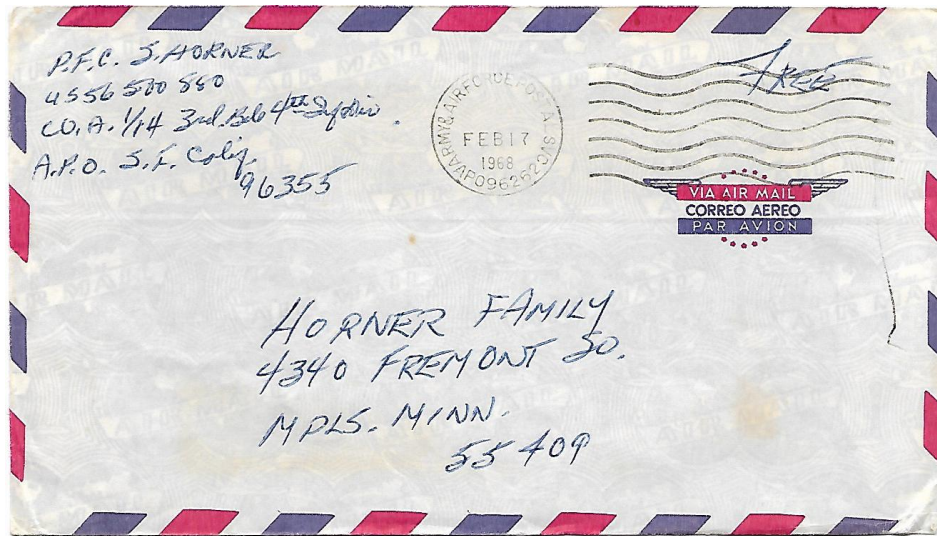 P.F.C. S. HORNER
US56580880
CO.A. 1/14 3rd.Bde 4th Inf Div.
A.P.O. S.F. Calif.
96355
ARMY & AIR FORCE POSTAL SVC
FEB 17
1968
APO 96262
Free
VIA AIR MAIL
CORREO AEREO
PAR AVION
HORNER FAMILY
4340 FREMONT SO.
MPLS. MINN.
55409